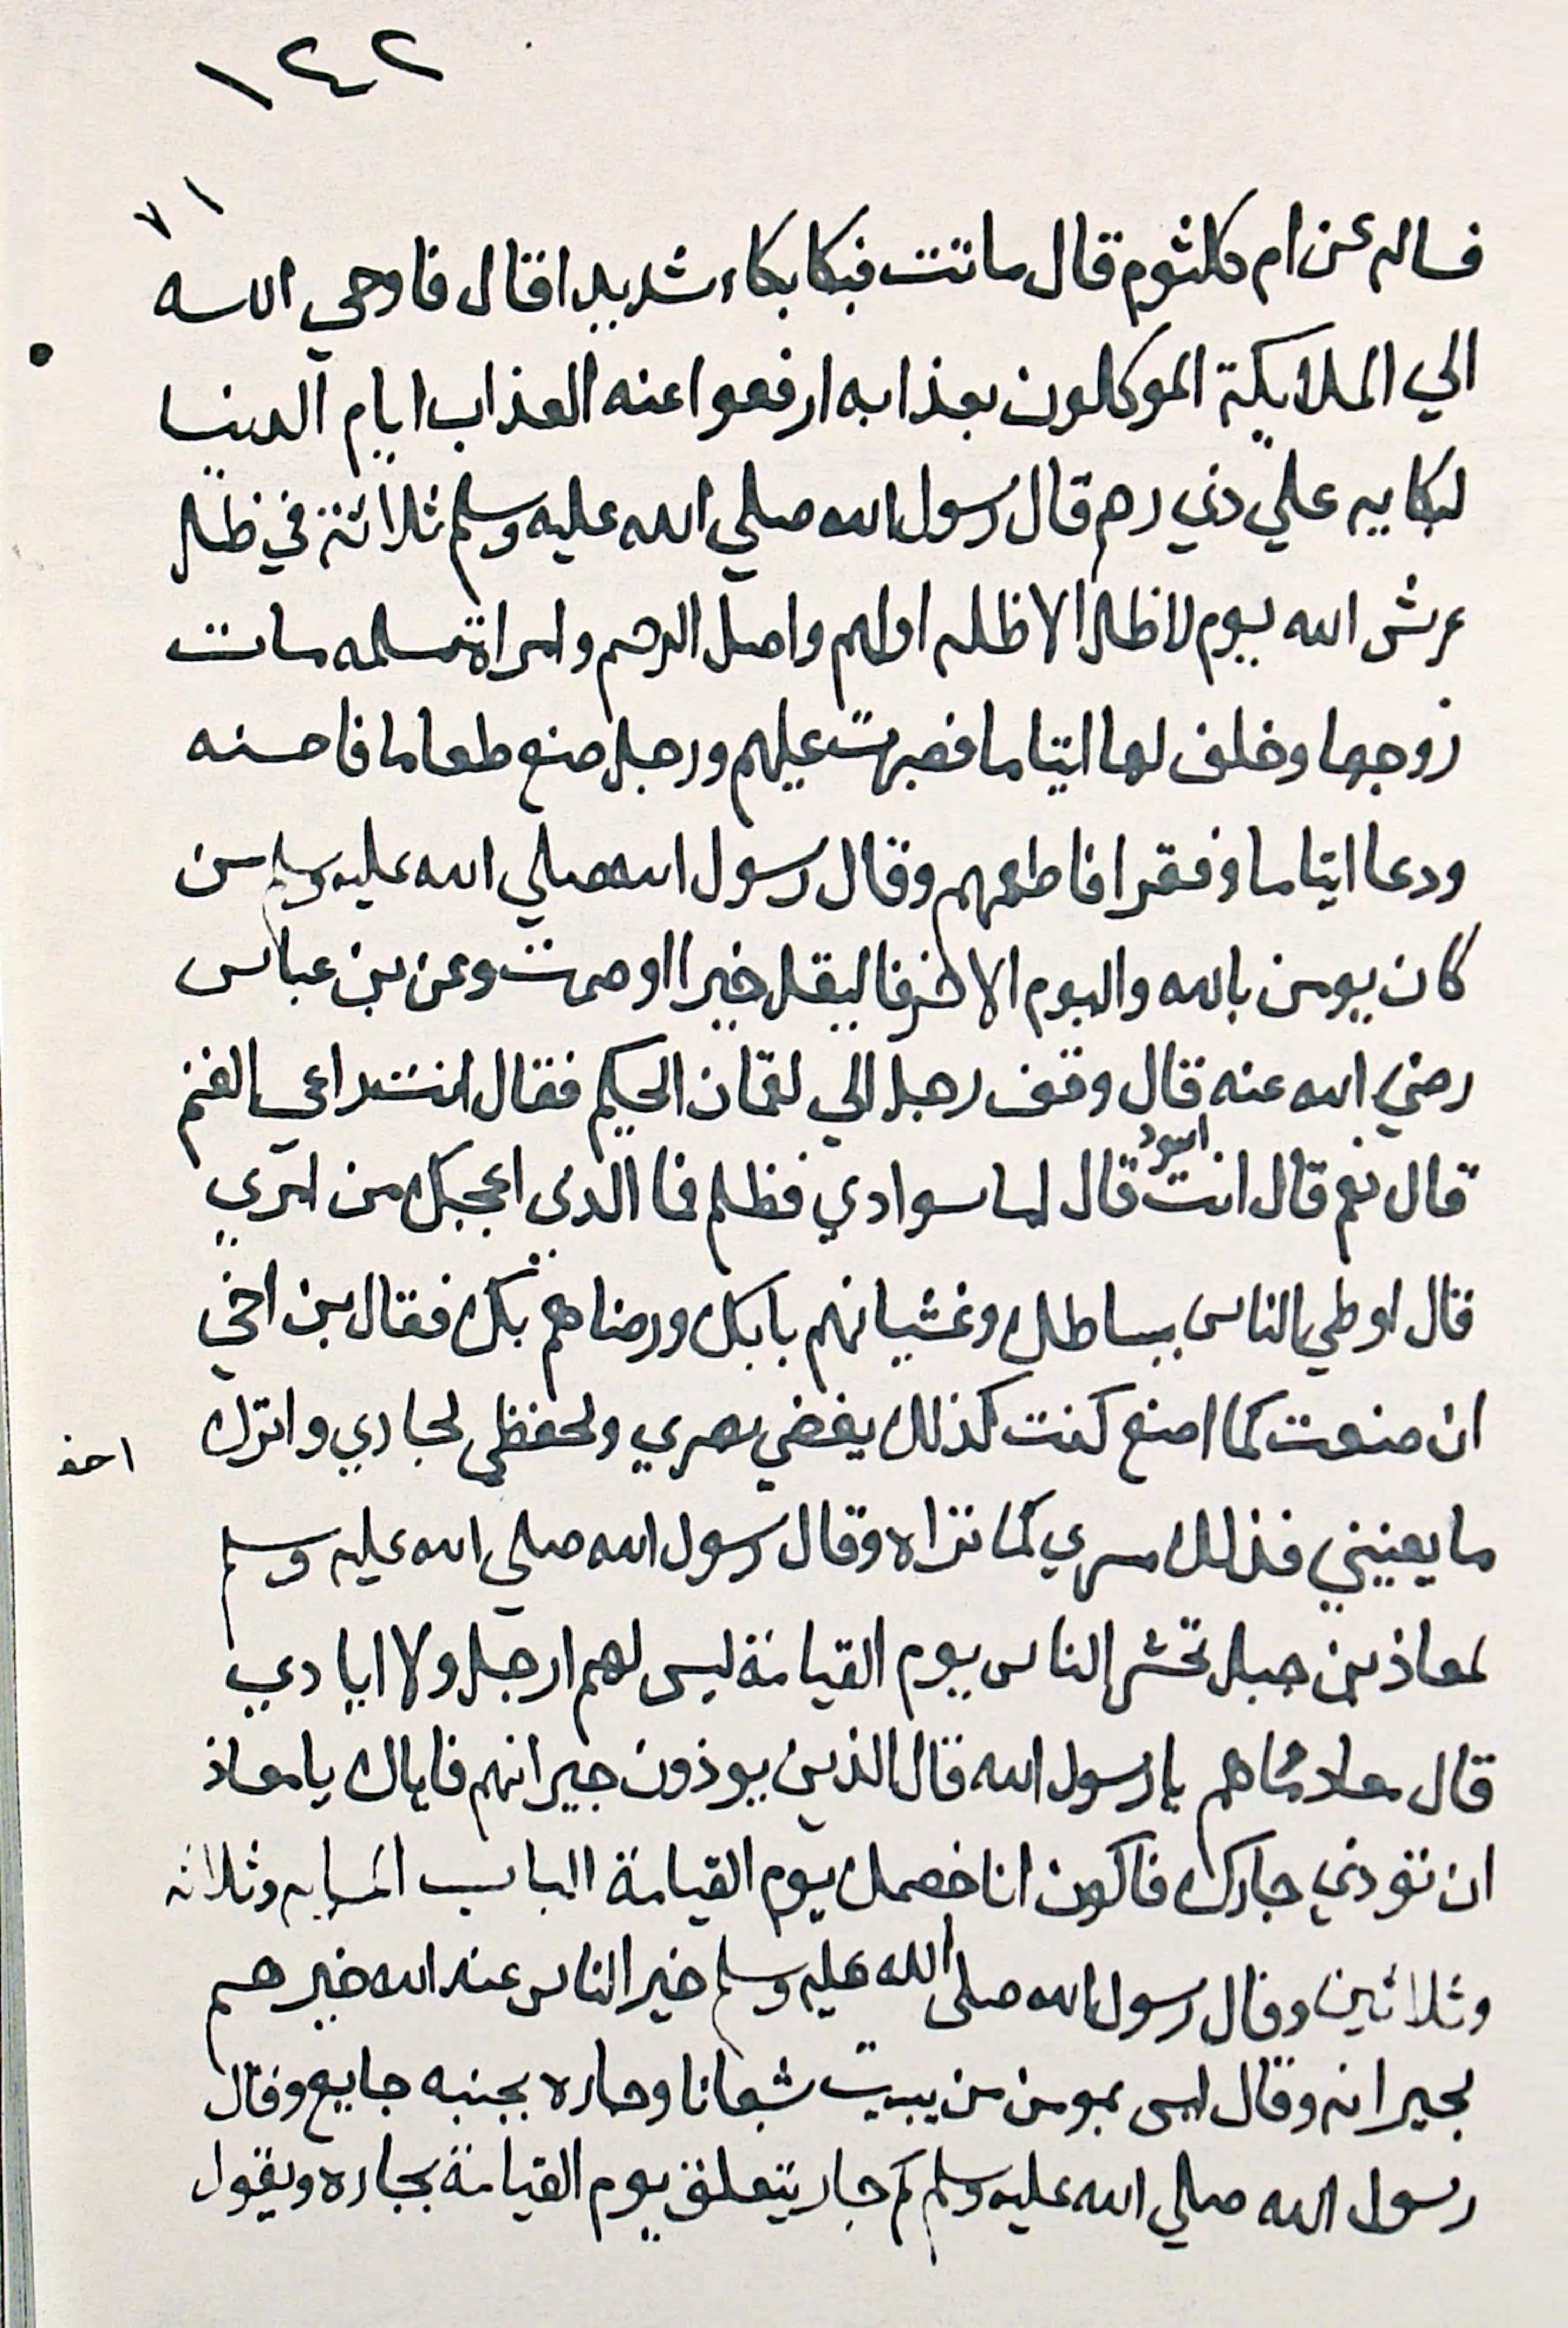 ١٤٢
٧١
فساله عن ام كلثوم قال ماتت فبكا بكاء شديدا قال فاوحي الله
الي الملايكة الموكلون بعذابه ارفعوا عنه العذاب ايام الدنيا
لبكايه علي ذي رحم قال رسول الله صلي الله عليه وسلم ثلاثة في ظل
عرش الله يوم لا ظل الا ظله اولهم واصل الرحم وامراة مسلمه مات
زوجها وخلف لها ايتاما فصبرت عليهم ورجل صنع طعاما فاحسنه
ودعا ايتاما وفقرا فاطعمهم وقال رسول الله صلي الله عليه وسلم من
كان يومن بالله واليوم الاخر فاليقل خيرا او صمت وعن بن عباس
رضي الله عنه قال وقف رجل الي لقمان الحكيم فقال انت راعي الغنم
قال نعم قال انت اسود قال اما سوادي فظلم فما الذي اعجبك من امري
قال اوطي الناس بساطك وغشيانهم بابك ورضاهم بك فقال بن اخي
ان صنعت كما اصنع كنت كذلك يغضي بصري ولحفظي لجاري واترك
احذ
ما يعنيني فذلك سري كما تراه وقال رسول الله صلي الله عليه وسلم
لمعاذ بن جبل تحشر الناس يوم القيامة ليس لهم ارجل ولا ايادي
قال معاذ مما هم يا رسول الله قال الذين يوذون جيرانهم فاياك يا معاذ
ان توذي جارك فاكون انا خصمك يوم القيامة الباب المايه وثلاثه
وثلاثين وقال رسول الله صلي الله عليه وسلم خير الناس عند الله خيرهم
بجيرانه وقال ليس بمومن من يبيت شبعانا وجاره بجنبه جايع وقال
رسول الله صلي الله عليه وسلم كم جار يتعلق يوم القيامة بجاره ويقول